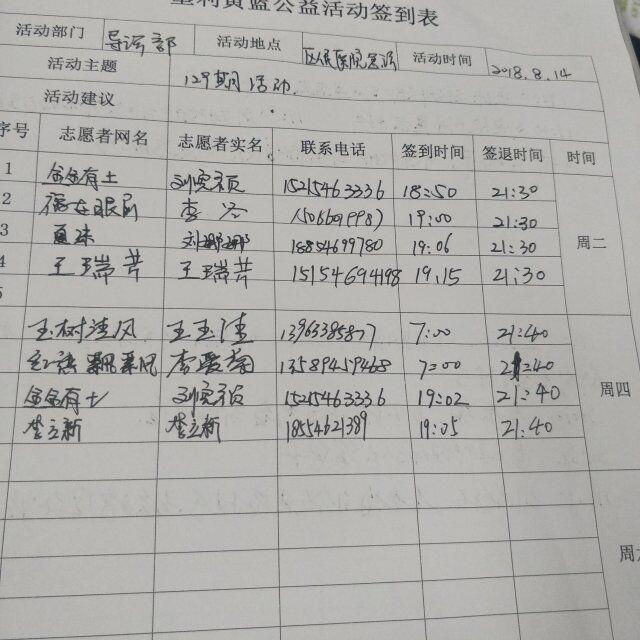 垦利黄蓝公益活动签到表
活动部门 导诊部 活动地点 区人民医院 活动时间 2018.8.14
活动主题 129期活动
活动建议
序号 志愿者网名 志愿者实名 联系电话 签到时间 签退时间 时间
1 金金有土 15215463336 18:50 21:30
2 福在眼前 19:00 21:30 周二
3 18854699780 19:06 21:30
4 王瑞芹 王瑞芹 15154694198 19:15 21:30
5
玉树清风 王玉清 13963385877 7:00 21:40
13589459468 7:00 21:40
金金有土 15215463336 19:02 21:40 周四
李立新 李立新 18554621389 19:05 21:40
周六